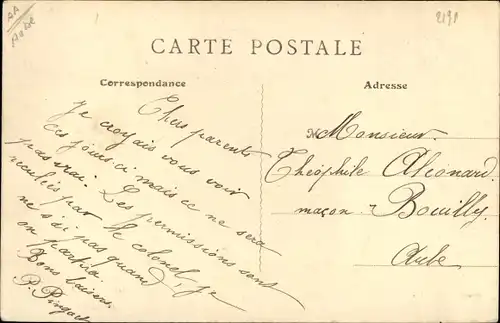 AA
Aube
2191
CARTE POSTALE
Correspondance
Adresse
Chers parents
Je croyais vous voir
ces jours-ci mais ce ne sera
pas vrai. Les permissions sont
reculées par le colonel, je
ne sais pas quand
on partira.
Bons baisers.
M Monsieur
Théophile
maçon à Bouilly
Aube